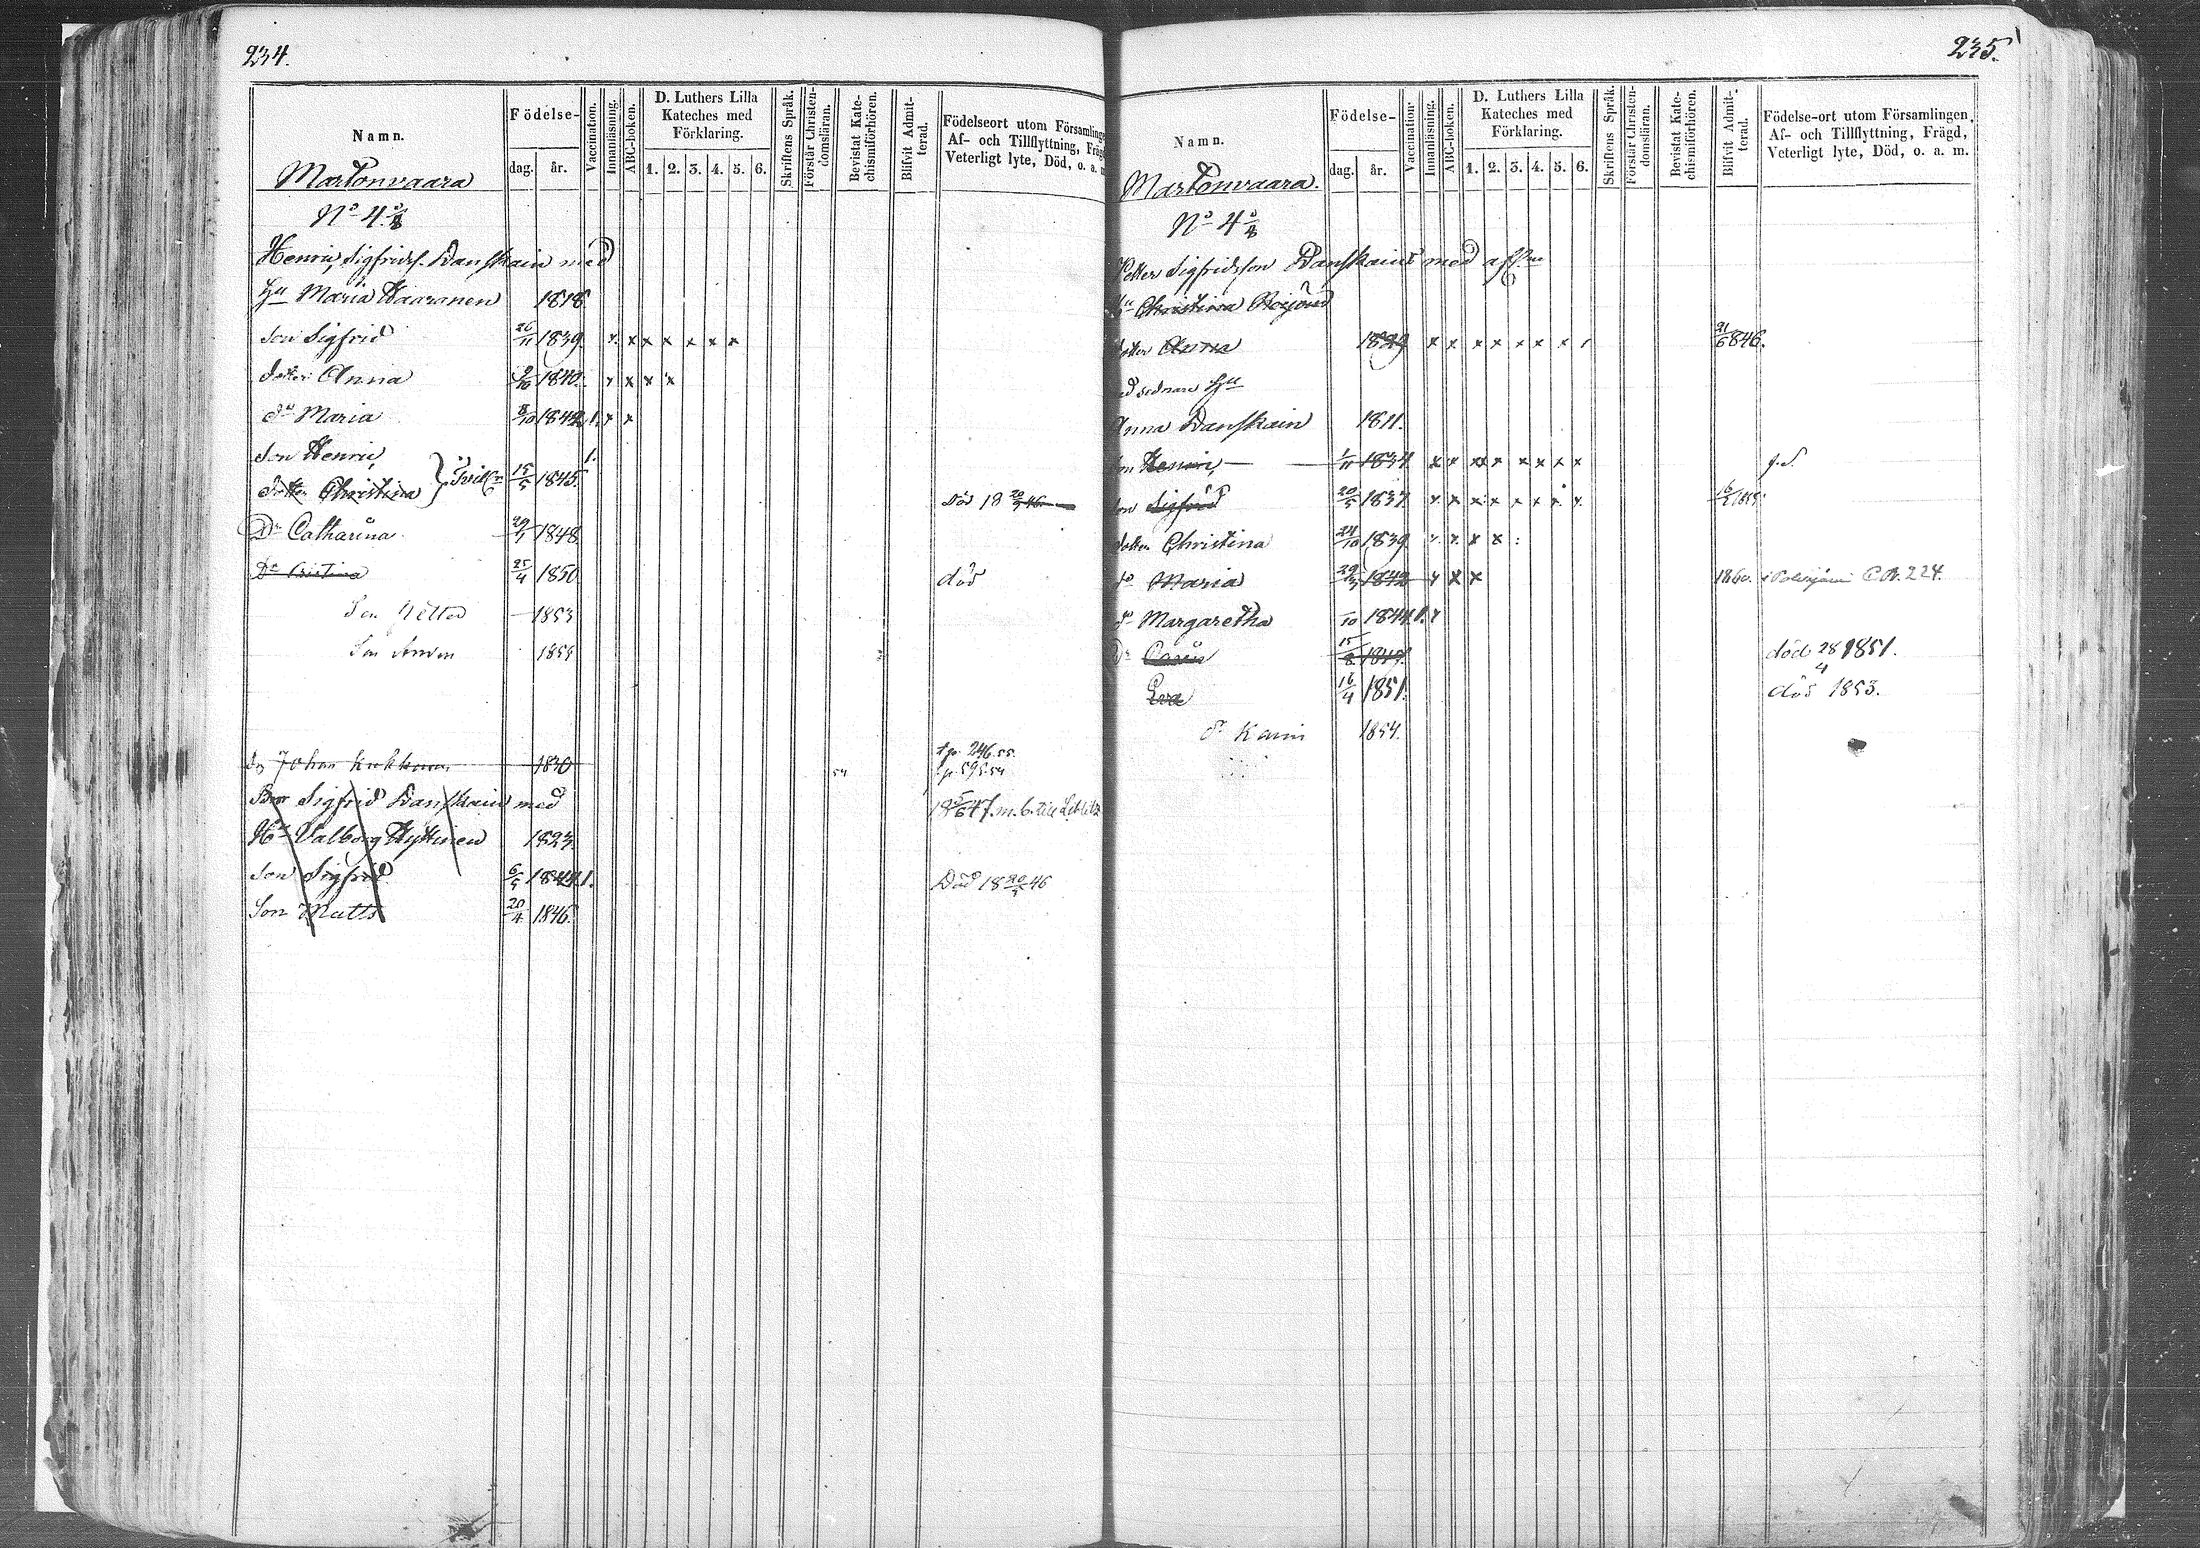 234.
Namn.
Födelse-
dag. år.
Vaccination.
Innanläsning.
ABC-boken.
D. Luthers Lilla
Kateches med
Förklaring.
1. 2. 3. 4. 5. 6.
Skriftens Språk.
Förstår Christen-
domsläran.
Bevistat Kate-
chismiförhören.
Blifvit Admit-
terad.
Födelseort utom Församlinge
Af- och Tillflyttning, Frägd
Veterligt lyte, Död, o. a. m
Martonvaara
No 4
Henric Sigfridss. Danskain med
Hu Maria Waaranen 1818
Son Sigfrid 26/11 1839. x x x x x x x
dotter Anna 2/10 1840. x x x x
do Maria 8/10 1842 1. x x
Son Henric, 1.
dotter Christina 15/5 1845. Död 18 20/5 46
Dr Catharina 29/1 1848
Dr Cristina 25/4 1850 död
Son Petter 1853
Son 1855
Johan Kukkonen 1830 54 t p. 246. 55.
f. p. 595. 54
Bror Sigfrid Danskain med 18 5/6 47 f. m. b. till
Hu Valborg Hyttinen 1823.
Son Sigfrid 6/5 1844 1. Död 18 20/5 46
Son Matts 20/4 1846.
235.
Namn.
Födelse-
dag. år.
Vaccination.
Innanläsning.
ABC-boken.
D. Luthers Lilla
Kateches med
Förklaring.
1. 2. 3. 4. 5. 6.
Skriftens Språk.
Förstår Christen-
domsläran.
Bevistat Kate-
chismiförhören.
Blifvit Admit-
terad.
Födelse-ort utom Församlingen,
Af- och Tillflyttning, Frägd,
Veterligt lyte, Död, o. a. m.
Martonvaara.
No 4
Petter Sigfridsson Danskains med afl.ne
Hu Christina
dotter Anna 1829 x x x x x x x 21/6 846.
med sednare Hu
Anna Danskain 1811.
Son Henric, 1/11 1834 x x x x x x x x
Son Sigfrid 20/5 1837. x x x x x x x x
dotter Christina 24/10 1839. x x x x
do Maria 1842 x x x 1860. C.B. 224.
do Margaretha /10 1844 1. x
Dr Carin 15/8 1847. död 28/4 1851.
Eva 16/4 1851. död 1853.
dr Karin 1854.